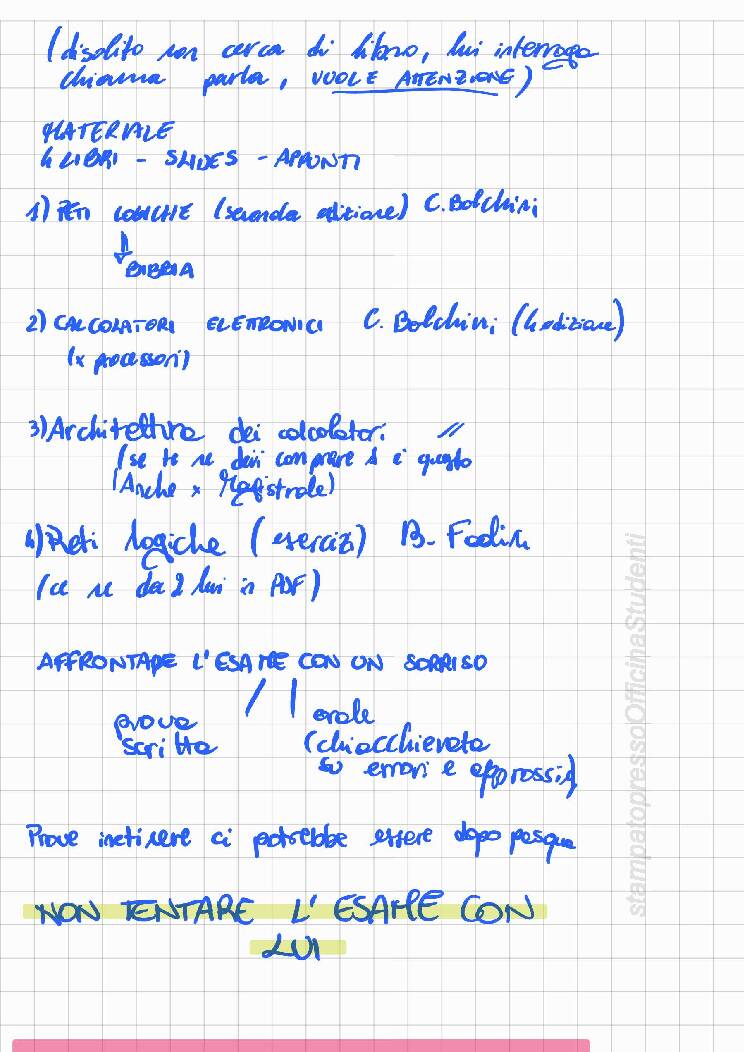 (disolito non cerca di libro, lui interroga
chiama parla, VUOLE ATTENZIONE)
MATERIALE
4 LIBRI - SLIDES - APPUNTI
1) RETI LOGICHE (seconda edizione) C. Bolchini
BIBBIA
2) CALCOLATORI ELETTRONICI C. Bolchini (4 edizione)
(x processori)
3) Architettura dei calcolatori //
(se te ne devi comprare 1 è questo
(Anche x Magistrale)
4) Reti logiche (esercizi) B.
(ce ne da 2 lui in PDF)
AFFRONTARE L'ESAME CON UN SORRISO
prova
scritta
orale
(chiacchierata
su errori e approssi)
Prove ci potrebbe essere dopo pasqua
NON TENTARE L'ESAME CON
LUI
stampatopressoOfficinaStudenti